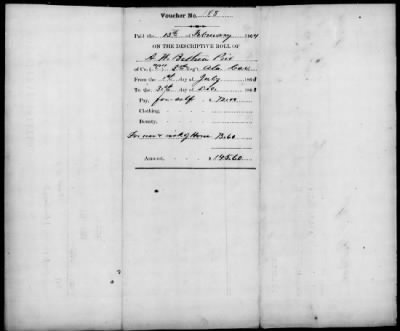 Voucher No. 88
Paid the 15th of February 1864
ON THE DESCRIPTIVE ROLL OF
A. W. Pvt
of Co. ( ) Reg't Ala Cav
From the 1st day of July 1863
To the 31st day of Dec 1863
Pay, for self $ 72.00
Clothing,
Bounty,
For use & risk of Horse 73.60
Amount, $ 145.60